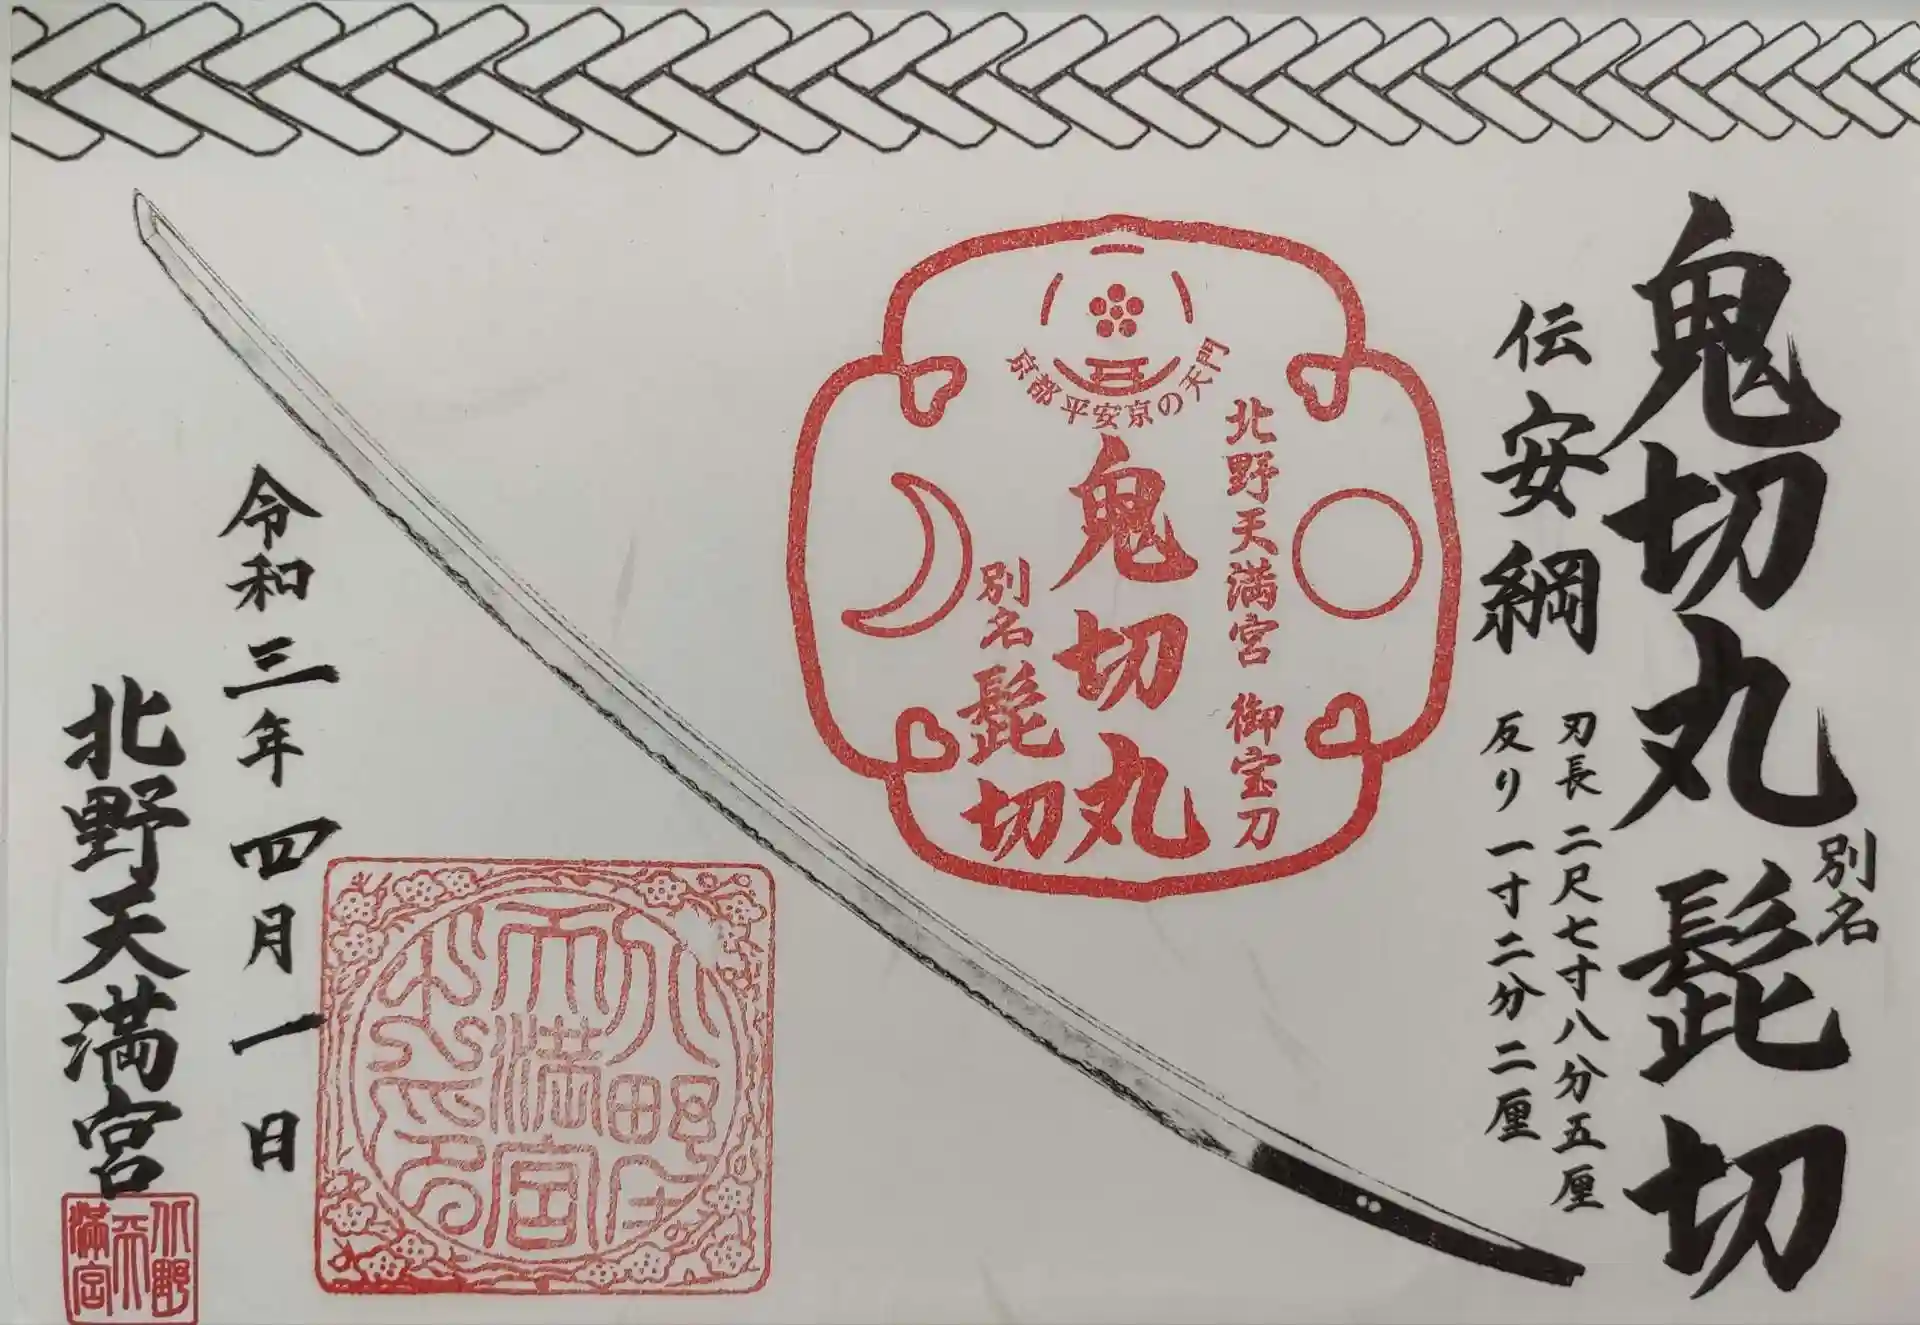 鬼切丸 別名 髭切
伝安綱
刃長 二尺七寸八分五厘
反り 一寸二分二厘
京都 平安京の天門
北野天満宮 御宝刀
鬼切丸
別名 髭切
令和三年四月一日
北野天満宮
北野
天満宮
北野
天
満宮